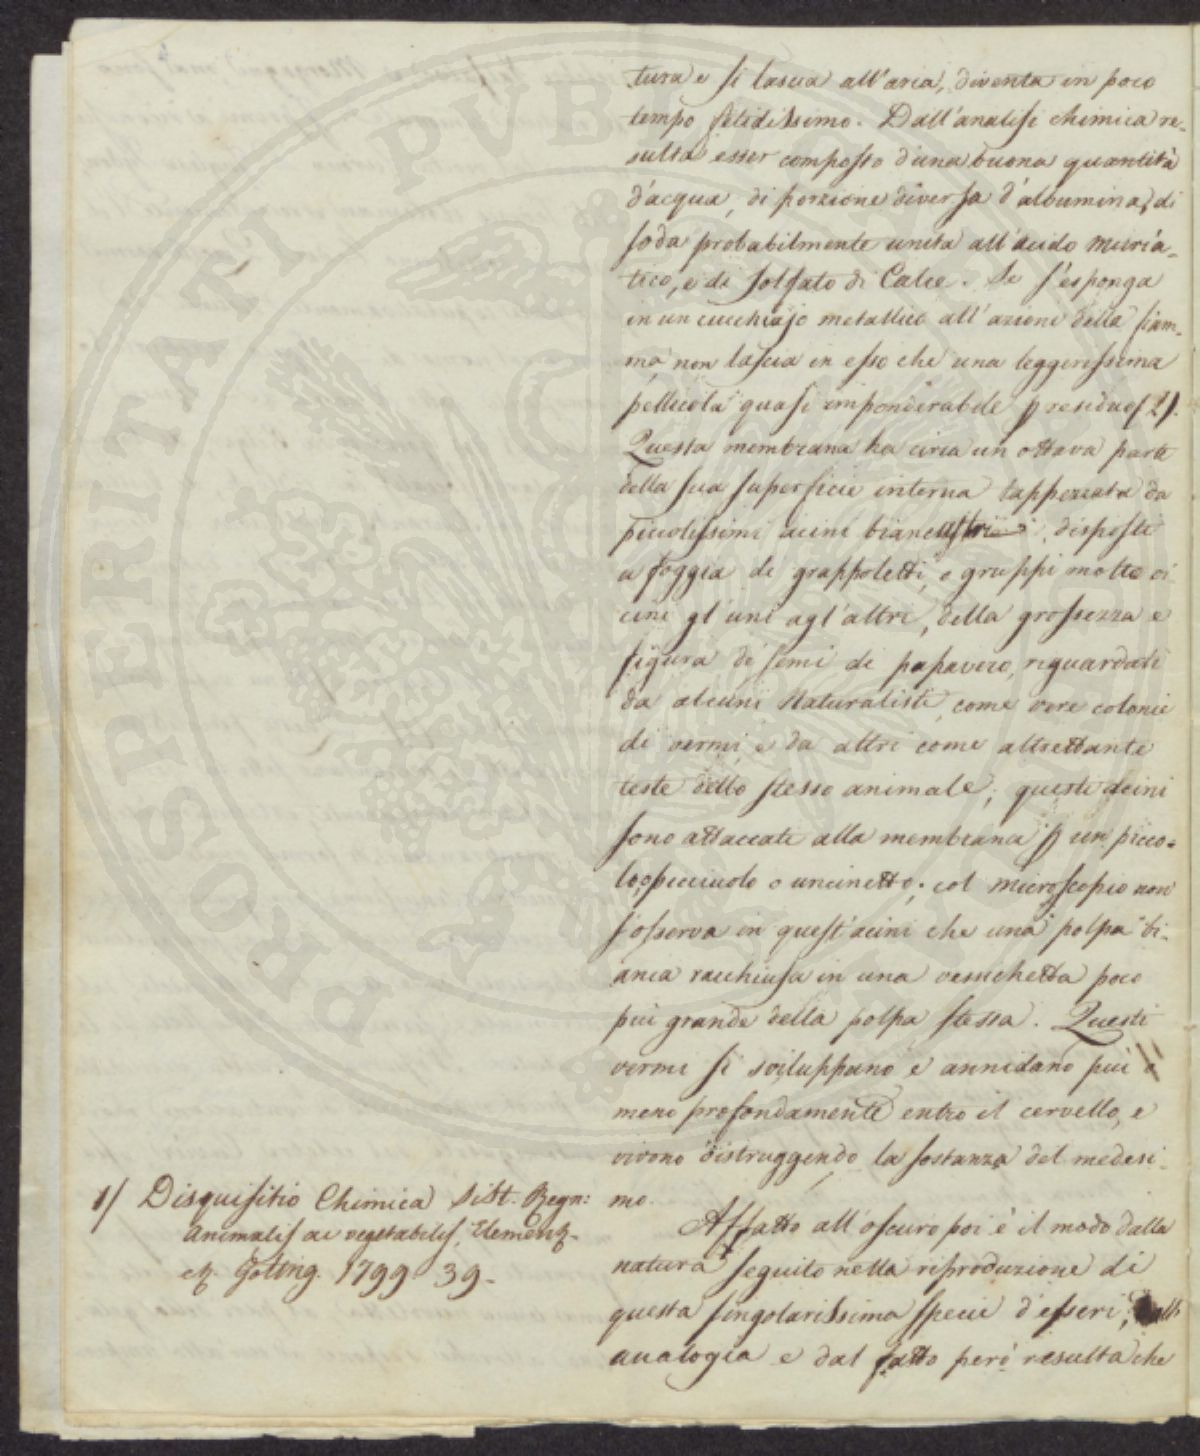 tura e si lascia all'aria, diventa in poco
tempo fetidissimo. Dall'analisi chimica re-
sulta esser composto d'una buona quantità
d'acqua, di porzione diversa d'albumina, di
soda probabilmente unita all'acido muria-
tico, e di solfato di Calce. Se s'esponga
in un cucchiajo metallico all'azione della fiam-
ma, non lascia in esso che una leggerissima
pellicola quasi imponderabile p residuo (1).
Questa membrana ha circa un ottava parte
della sua superficie interna tappezzata da
piccolissimi acini biancastri disposti
a foggia di grappoletti, o gruppi molto vi
cini gl'uni agl'altri, della grossezza e
figura di semi di papavero, riguardati
da alcuni Naturalisti, come vere colonie
di vermi, e da altri come altrettante
teste dello stesso animale; questi acini
sono attaccati alla membrana p un picco-
lo picciuolo o uncinetto; col microscopio non
s'osserva in quest'acini che una polpa bi-
anca racchiusa in una vessichetta poco
più grande della polpa stessa. Questi
vermi si sviluppano e annidano più o
meno profondamente entro il cervello, e
vivono distruggendo la sostanza del medesi-
mo.
Affatto all'oscuro poi è il modo dalla
natura seguito nella riproduzione di
questa singolarissima specie d'esseri; dall'
analogia e dal fatto però resulta che
1/ Disquisitio Chimica Sist. Regn:
Animalis ac vegetabilis, Element.
et. Goting. 1799 39.
PROSPERITATI PUBL